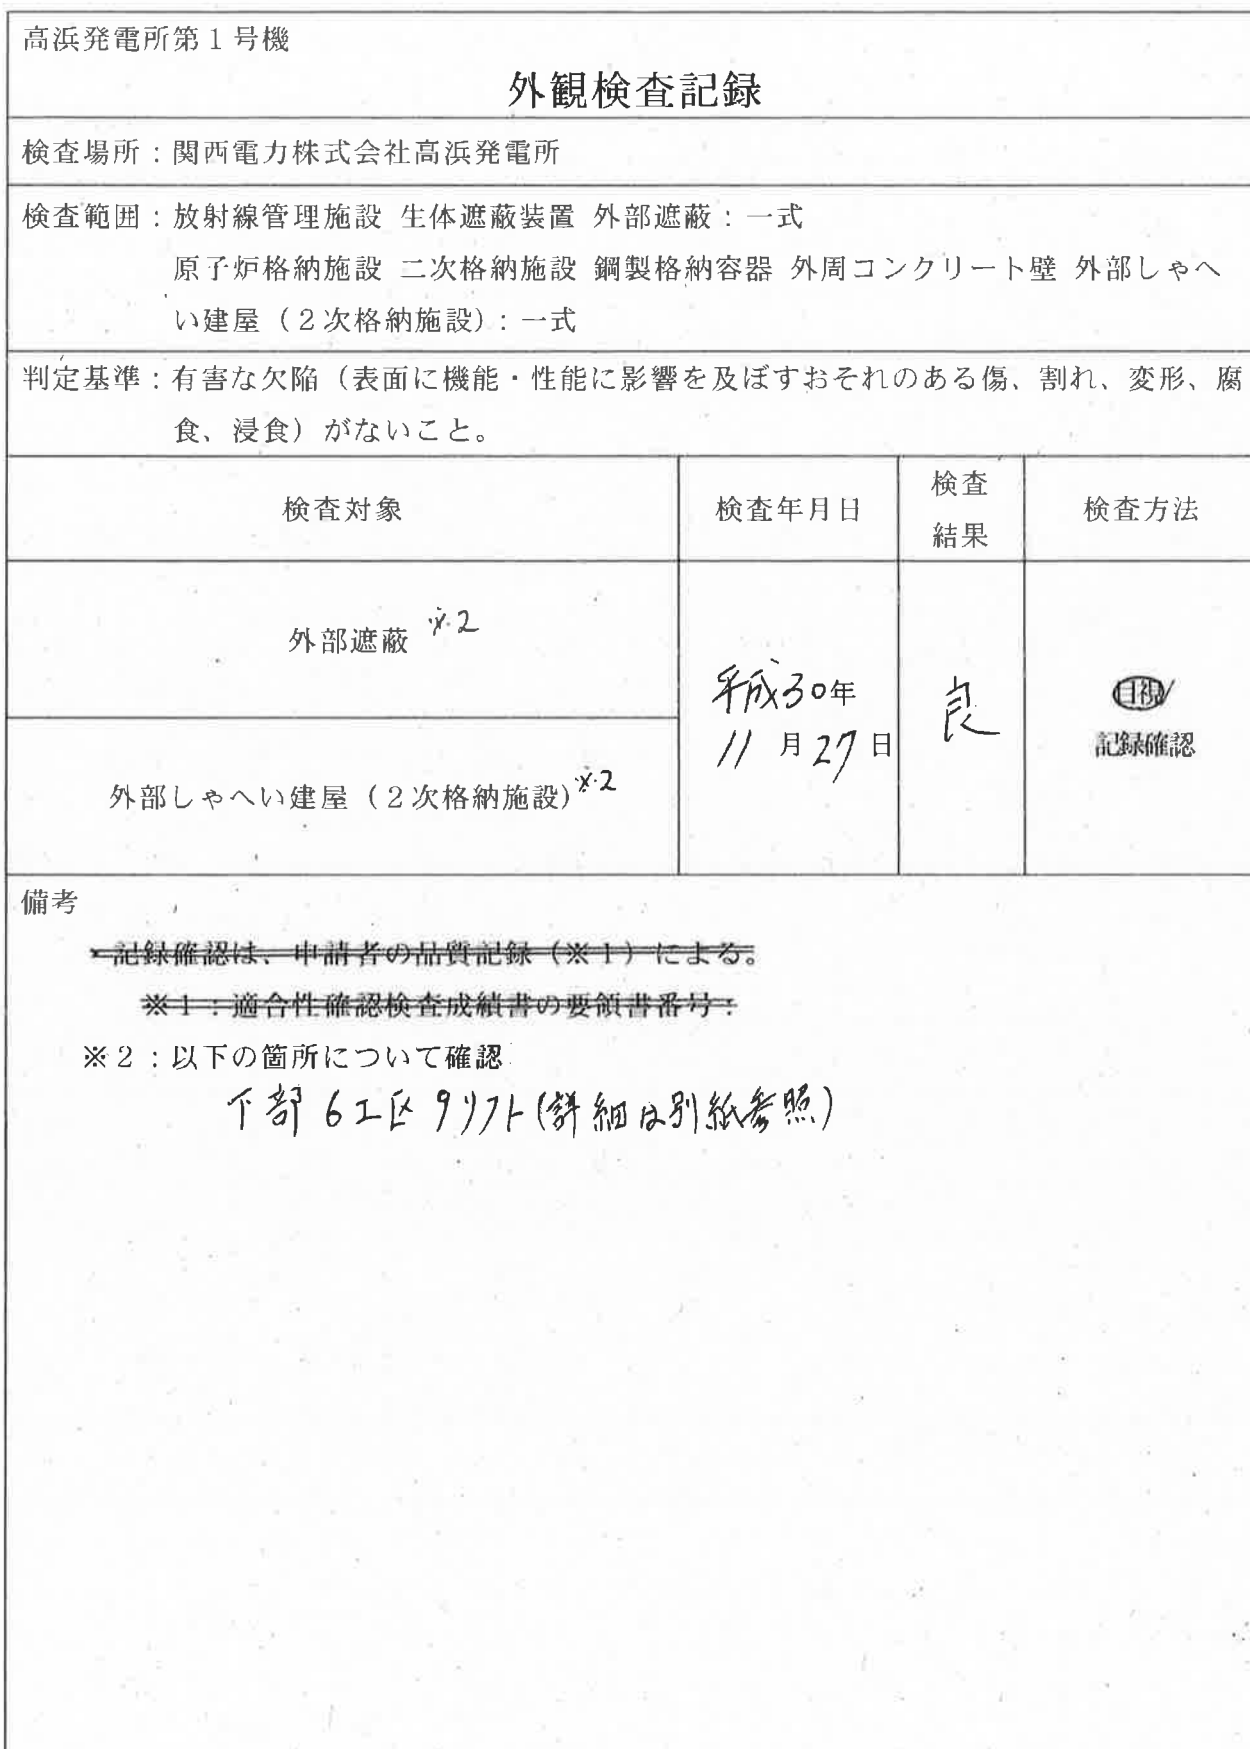 高浜発電所第１号機
外観検査記録
検査場所：関西電力株式会社高浜発電所
検査範囲：放射線管理施設 生体遮蔽装置 外部遮蔽：一式
原子炉格納施設 二次格納施設 鋼製格納容器 外周コンクリート壁 外部しゃへ
い建屋（２次格納施設）：一式
判定基準：有害な欠陥（表面に機能・性能に影響を及ぼすおそれのある傷、割れ、変形、腐
食、浸食）がないこと。
検査対象
検査年月日
検査
結果
検査方法
外部遮蔽 ※2
外部しゃへい建屋（２次格納施設）※2
平成30年
11月27日
良
目視/
記録確認
備考
・記録確認は、申請者の品質記録（※１）による。
※１：適合性確認検査成績書の要領書番号：
※２：以下の箇所について確認
下部6工区9リフト(詳細は別紙参照)